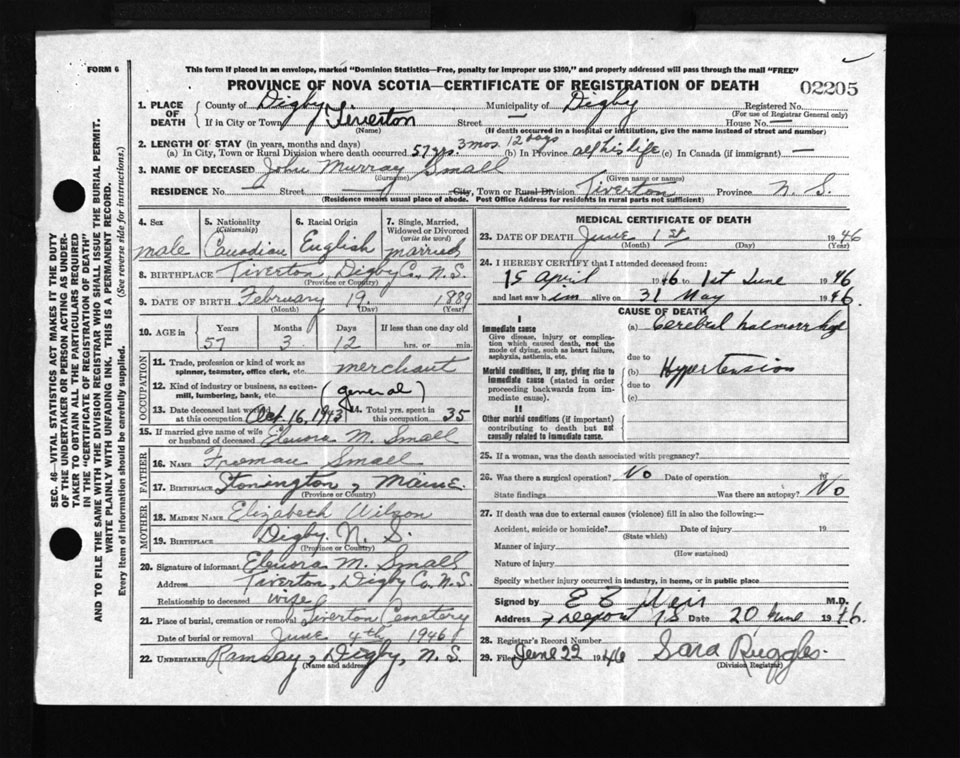 FORM 6
This form if placed in an envelope, marked "Dominion Statistics—Free, penalty for improper use $300," and properly addressed will pass through the mail "FREE"
PROVINCE OF NOVA SCOTIA—CERTIFICATE OF REGISTRATION OF DEATH
02205
SEC. 46—VITAL STATISTICS ACT MAKES IT THE DUTY
OF THE UNDERTAKER OR PERSON ACTING AS UNDER-
TAKER TO OBTAIN ALL THE PARTICULARS REQUIRED
IN THE "CERTIFICATE OF REGISTRATION OF DEATH"
AND TO FILE THE SAME WITH THE DIVISION REGISTRAR WHO SHALL ISSUE THE BURIAL PERMIT.
WRITE PLAINLY WITH UNFADING INK. THIS IS A PERMANENT RECORD.
Every item of information should be carefully supplied. (See reverse side for instructions.)
1. PLACE OF DEATH
County of Digby Municipality of Digby Registered No.
(For use of Registrar General only)
If in City or Town Tiverton Street — House No. —
(Name) (If death occurred in a hospital or institution, give the name instead of street and number)
2. LENGTH OF STAY (in years, months and days)
(a) In City, Town or Rural Division where death occurred 57 yrs. 3 mos. 12 days (b) In Province all his life (c) In Canada (if immigrant) —
3. NAME OF DECEASED John Murray Small
(Surname) (Given name or names)
RESIDENCE No. — Street — City, Town or Rural Division Tiverton Province N. S.
(Residence means usual place of abode. Post Office Address for residents in rural parts not sufficient)
4. Sex male
5. Nationality (Citizenship) Canadian
6. Racial Origin English
7. Single, Married, Widowed or Divorced (write the word) married
8. BIRTHPLACE Tiverton, Digby Co., N.S.
(Province or Country)
9. DATE OF BIRTH February 19, 1889
(Month) (Day) (Year)
10. AGE in Years 57 Months 3 Days 12 If less than one day old hrs. or min.
OCCUPATION
11. Trade, profession or kind of work as spinner, teamster, office clerk, etc. merchant
12. Kind of industry or business, as cotton-mill, lumbering, bank, etc. (general)
13. Date deceased last worked at this occupation Oct. 16, 1943 14. Total yrs. spent in this occupation 35
15. If married give name of wife or husband of deceased Elenora M. Small
FATHER
16. NAME Froman Small
17. BIRTHPLACE Stonington, Maine.
(Province or Country)
MOTHER
18. MAIDEN NAME Elizabeth Wilson
19. BIRTHPLACE Digby. N. S.
(Province or Country)
20. Signature of informant Elenora M. Small
Address Tiverton, Digby Co. N.S.
Relationship to deceased wife
21. Place of burial, cremation or removal Tiverton Cemetery
Date of burial or removal June 4th 1946
22. UNDERTAKER Ramsay, Digby, N. S.
(Name and address)
MEDICAL CERTIFICATE OF DEATH
23. DATE OF DEATH June 1st 1946
(Month) (Day) (Year)
24. I HEREBY CERTIFY that I attended deceased from:
15 April 1946 to 1st June 1946
and last saw him alive on 31 May 1946.
CAUSE OF DEATH
I
Immediate cause
Give disease, injury or complication which caused death, not the mode of dying, such as heart failure, asphyxia, asthenia, etc.
(a) Cerebral haemorrhage
due to
Morbid conditions, if any, giving rise to immediate cause (stated in order proceeding backwards from immediate cause).
(b) Hypertension
due to
(c)
II
Other morbid conditions (if important) contributing to death but not causally related to immediate cause.
25. If a woman, was the death associated with pregnancy?
26. Was there a surgical operation? No Date of operation 19
State findings Was there an autopsy? No
27. If death was due to external causes (violence) fill in also the following:—
Accident, suicide or homicide? Date of injury 19
(State which)
Manner of injury
(How sustained)
Nature of injury
Specify whether injury occurred in industry, in home, or in public place
Signed by M.D.
Address Freeport NS Date 20 June 1946.
28. Registrar's Record Number
29. Filed June 22 1946 Sara Ruggles.
(Division Registrar)